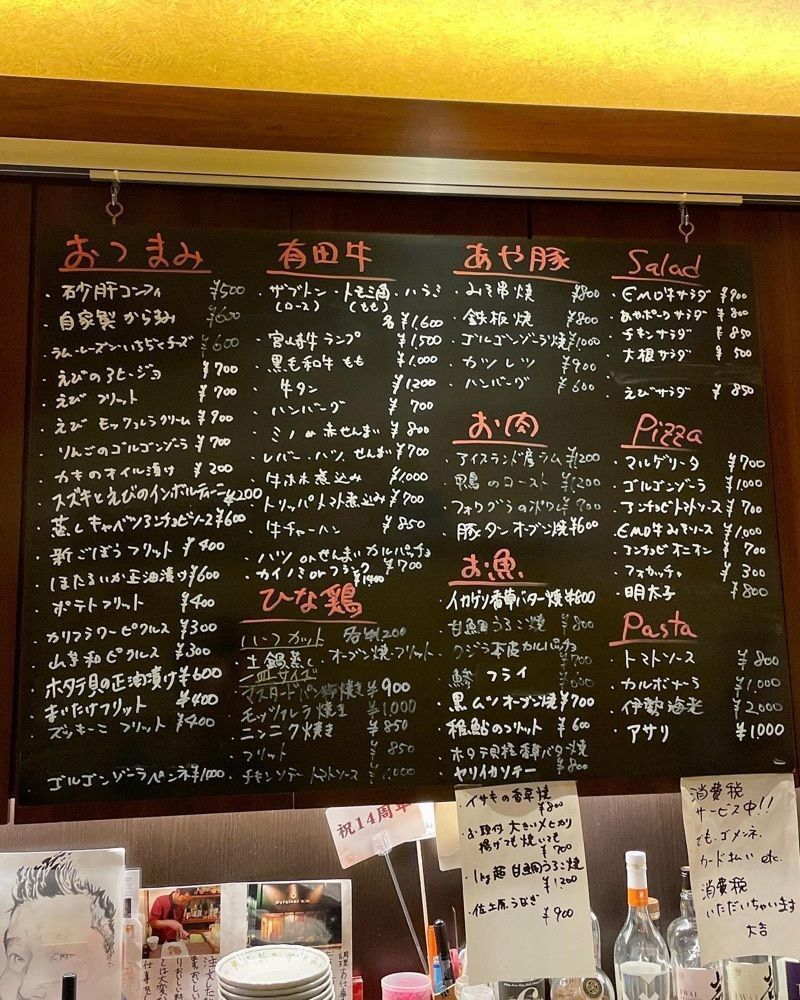 おつまみ
・砂肝コンフィ ¥500
・自家製からすみ ¥600
・ラムレーズン・いちぢくチーズ ¥600
・えびのアヒージョ ¥700
・えび フリット ¥700
・えび モッツァレラクリーム ¥900
・りんごのゴルゴンゾーラ ¥700
・カキのオイル漬け ¥200
スズキとえびのインボルティーニ ¥1200
・蒸しキャベツアンチョビソース ¥600
・新ごぼうフリット ¥400
・ほたるいか正油漬け ¥600
・ポテトフリット ¥400
・カリフラワーピクルス ¥300
・山芋和ピクルス ¥300
・ホタテ貝の正油漬け ¥600
・まいたけフリット ¥400
・ズッキーニフリット ¥400
・ゴルゴンゾーラペンネ ¥1000
有田牛
・ザブトン・トモ三角・ハラミ
(ロース) (もも)
各¥1,600
・宮崎牛ランプ ¥1,500
・黒毛和牛もも ¥1,000
・牛タン ¥1200
・ハンバーグ ¥700
・ミノor赤せんまい ¥800
・レバー・ハツ、せんまい ¥700
・牛ホホ煮込み ¥1,000
・トリッパトマト煮込み ¥700
・牛チャーハン ¥850
・ハツorせんまいカルパッチョ ¥700
・カイノミorフランク ¥1400
ひな鶏
いつつカット 各¥1200
・土鍋蒸し・オーブン焼・フリット
一皿サイズ
・マスタードパン粉焼き ¥900
・モッツァレラ焼き ¥1,000
・ニンニク焼き ¥850
・フリット 850
・チキンソテートマトソース ¥1,000
あや豚
・みそ串焼 ¥800
・鉄板焼 ¥800
・ゴルゴンゾーラ焼 ¥1000
・カツレツ ¥900
・ハンバーグ ¥600
お肉
・アイスランド産ラム ¥1200
・鴨のロースト ¥1200
・フォワグラのポワレ ¥700
・豚タンオーブン焼 ¥600
お魚
イカゲソ香草バター焼 ¥800
・甘鯛うろこ焼 ¥800
・クジラ本皮カルパッチョ ¥700
・鯵フライ ¥600
・黒ムツオーブン焼 ¥700
稚鮎のフリット ¥600
・ホタテ貝柱香草バター焼
・ヤリイカソテー ¥800
Salad
・EMO牛サラダ ¥900
・あやポークサラダ ¥800
・チキンサラダ ¥850
・大根サラダ ¥500
・えびサラダ ¥850
Pizza
・マルゲリータ ¥700
・ゴルゴンゾーラ ¥1000
・アンチョビトマトソース ¥700
・EMO牛みそソース ¥1,000
・アンチョビオニオン ¥700
・フォカッチャ ¥300
・明太子 ¥800
Pasta
・トマトソース ¥800
・カルボナーラ ¥1,000
・伊勢海老 ¥2,000
・アサリ ¥1000
・イサキの香草焼 ¥800
・お取付大きいメヒカリ
揚げても焼いても ¥700
・1kg超甘鯛うろこ焼 ¥1200
・佐土原うなぎ ¥900
消費税
サービス中!!
でも、ゴメンネ
カード払い etc.
消費税
いただいちゃいます
大吉
祝14周年